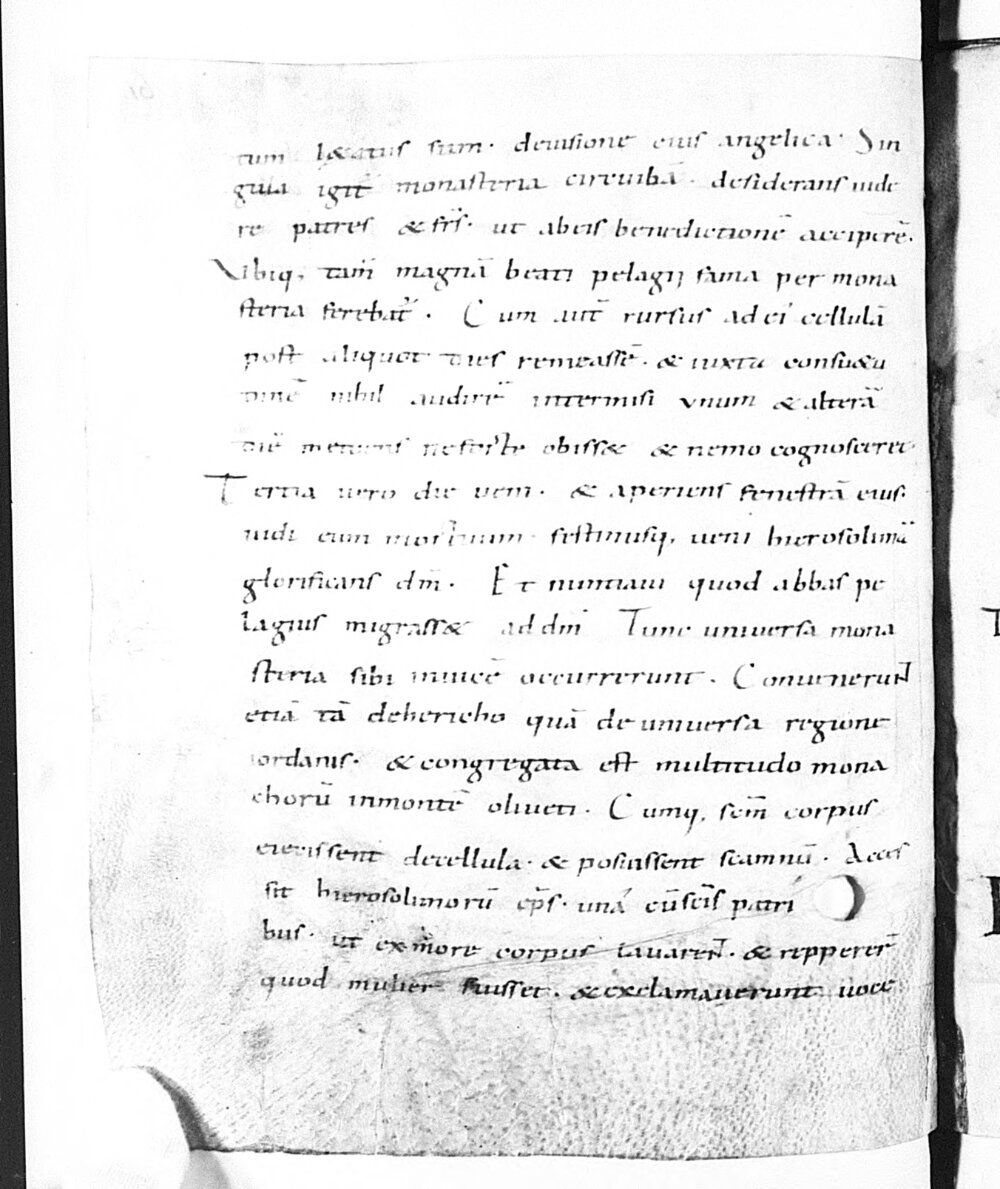 tum l&atus sum. deuisione eius angelica. Sin
gula igit̄ monasteria circuibā. desiderans uide
re patres & frs̄. ut abeis benedictionē acciperē.
Vbiq; tam̄ magnā beati pelagij fama per mona
steria ferebat̄. Cum aut̄ rursus ad ei cellulā
post aliquot dies remeassē. & iuxta consu&u
dinē nihil audirē intermisi vnum & alterā
diē metuens ne forte obiss& & nemo cognosceret
Tertia uero die ueni. & aperiens fenestrā eius.
uidi eum mortuum festinusq; ueni hierosolimā
glorificans dm̄. Et nuntiaui quod abbas pe
lagius migrass& ad dm̄ Tunc uniuersa mona
steria sibi inuicē occurrerunt. Conuenerunt
etiā tā dehiericho quā de uniuersa regione
iordanis. & congregata est multitudo mona
chorū inmontē oliueti. Cumq; scm̄ corpus
eiecissent decellula. & posuissent scamnū. Acces
sit hierosolimorū ep̄s. una cū scis̄ patri
bus. ut ex more corpus lauarent. & reppererē
quod mulier fuisset. & exclamauerunt uoce